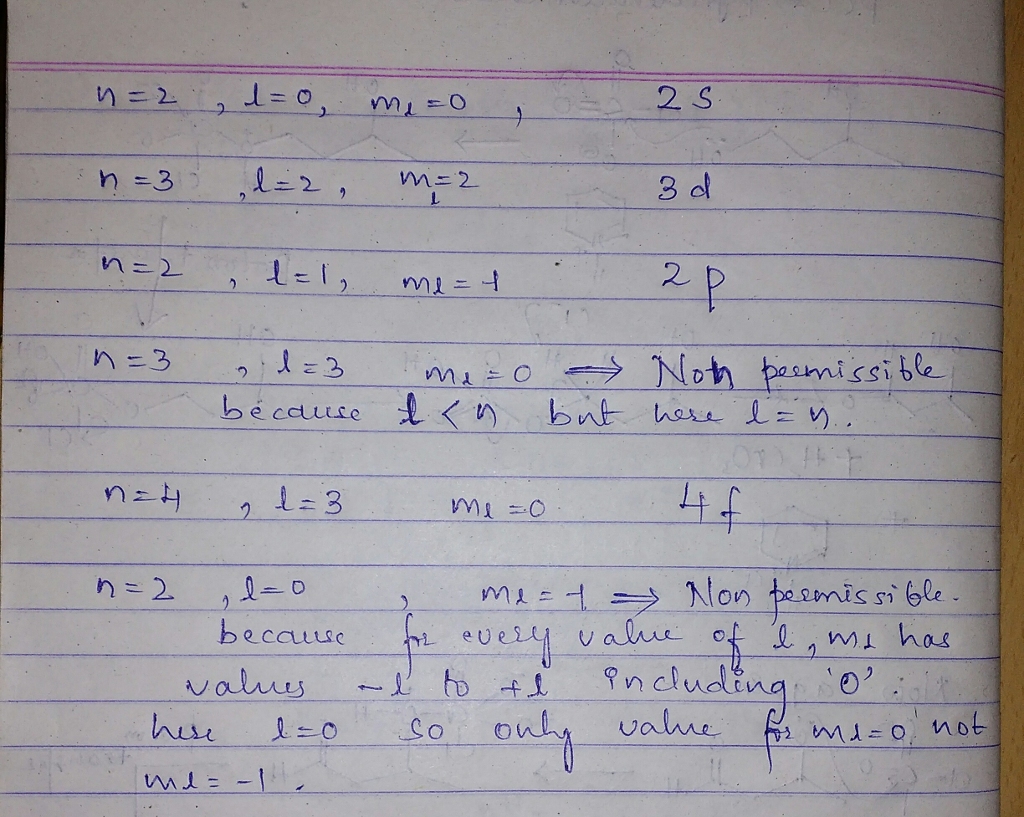 n=2 , l=0, ml=0 , 2s
n=3 , l=2 , ml=2 3d
n=2 , l=1, ml=-1 2p
n=3 , l=3 ml=0 ⟹ Non permissible
because l<n but here l=n.
n=4 , l=3 ml=0 4f
n=2 , l=0 , ml=-1 ⟹ Non permissible.
because for every value of l, ml has
values -l to +l including '0'.
here l=0 so only value for ml=0 not
ml=-1.